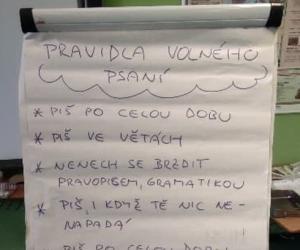 PRAVIDLA VOLNÉHO
PSANÍ
* PIŠ PO CELOU DOBU
* PIŠ VE VĚTÁCH
* NENECH SE BRZDIT
PRAVOPISEM, GRAMATIKOU
* PIŠ, I KDYŽ TĚ NIC NE-
NAPADÁ
PIŠ PO CELOU DOBU